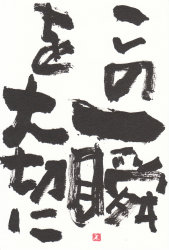 この一瞬
を大切に